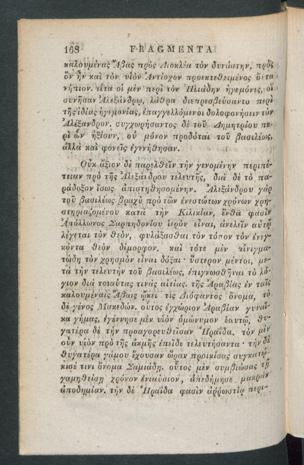 168 FRAGMENTA
καλουμένας Ἄβας πρὸς Διοκλέα τὸν δυνάστην, πρὸς
ὃν ἦν καὶ τὸν υἱὸν Ἀντίοχον προεκτεθειμένος ὄντα
νήπιον. εἶτα οἱ μὲν περὶ τὸν Ἡλιάδην ἡγεμόνες, οἱ
συνῆσαν Ἀλεξάνδρῳ, λάθρα διεπρεσβεύσαντο περὶ
τῆς ἰδίας ἡγεμονίας, ἐπαγγελλόμενοι δολοφονήσειν τὸν
Ἀλέξανδρον. συγχωρήσαντος δὲ τοῦ Δημητρίου πε-
ρὶ ὧν ἠξίουν, οὐ μόνον προδόται τοῦ βασιλέως,
ἀλλὰ καὶ φονεῖς ἐγενήθησαν.
Οὐκ ἄξιον δὲ παρελθεῖν τὴν γενομένην περιπέ-
τειαν πρὸ τῆς Ἀλεξάνδρου τελευτῆς, διὰ δὲ τὸ πα-
ράδοξον ἴσως ἀπιστηθησομένην. Ἀλεξάνδρου γὰρ
τοῦ βασιλέως βραχὺ πρὸ τῶν ἐνεστώτων χρόνων χρη-
στηριαζομένου κατὰ τὴν Κιλικίαν, ἔνθα φασὶν
Ἀπόλλωνος Σαρπηδονίου ἱερὸν εἶναι, ἀνελεῖν αὐτῷ
λέγεται τὸν θεὸν, φυλάξασθαι τὸν τόπον τὸν ἐνεγ-
κόντα θεὸν δίμορφον. καὶ τότε μὲν αἰνιγμα-
τώδη τὸν χρησμὸν εἶναι δόξαι· ὕστερον μέντοι, με-
τὰ τὴν τελευτὴν τοῦ βασιλέως, ἐπιγνωσθῆναι τὸ λό-
γιον διὰ τοιαύτας τινὰς αἰτίας. τῆς Ἀραβίας ἐν ταῖς
καλουμέναις Ἄβαις ᾤκει τις Διόφαντος ὄνομα, τὸ
δὲ γένος Μακεδών. οὗτος ἐγχώριον Ἀραβίαν γυναῖ-
κα γήμας, ἐγέννησε μὲν υἱὸν ὁμώνυμον ἑαυτῷ, θυ-
γατέρα δὲ τὴν προσαγορευθεῖσαν Ἡραΐδα. τὸν μὲν
οὖν υἱὸν πρὸ τῆς ἀκμῆς ἐπεῖδε τελευτήσαντα· τὴν δὲ
θυγατέρα γάμου ἔχουσαν ὥραν προικίσας συνῴκισέ
τινι ὄνομα Σαμιάδῃ. οὗτος μὲν συμβιώσας τῇ
γαμηθείσῃ χρόνον ἐνιαύσιον, ἀπεδήμησε μακρὰν
ἀποδημίαν. τὴν δὲ Ἡραΐδα φασὶν ἀῤῥωστίᾳ περι-